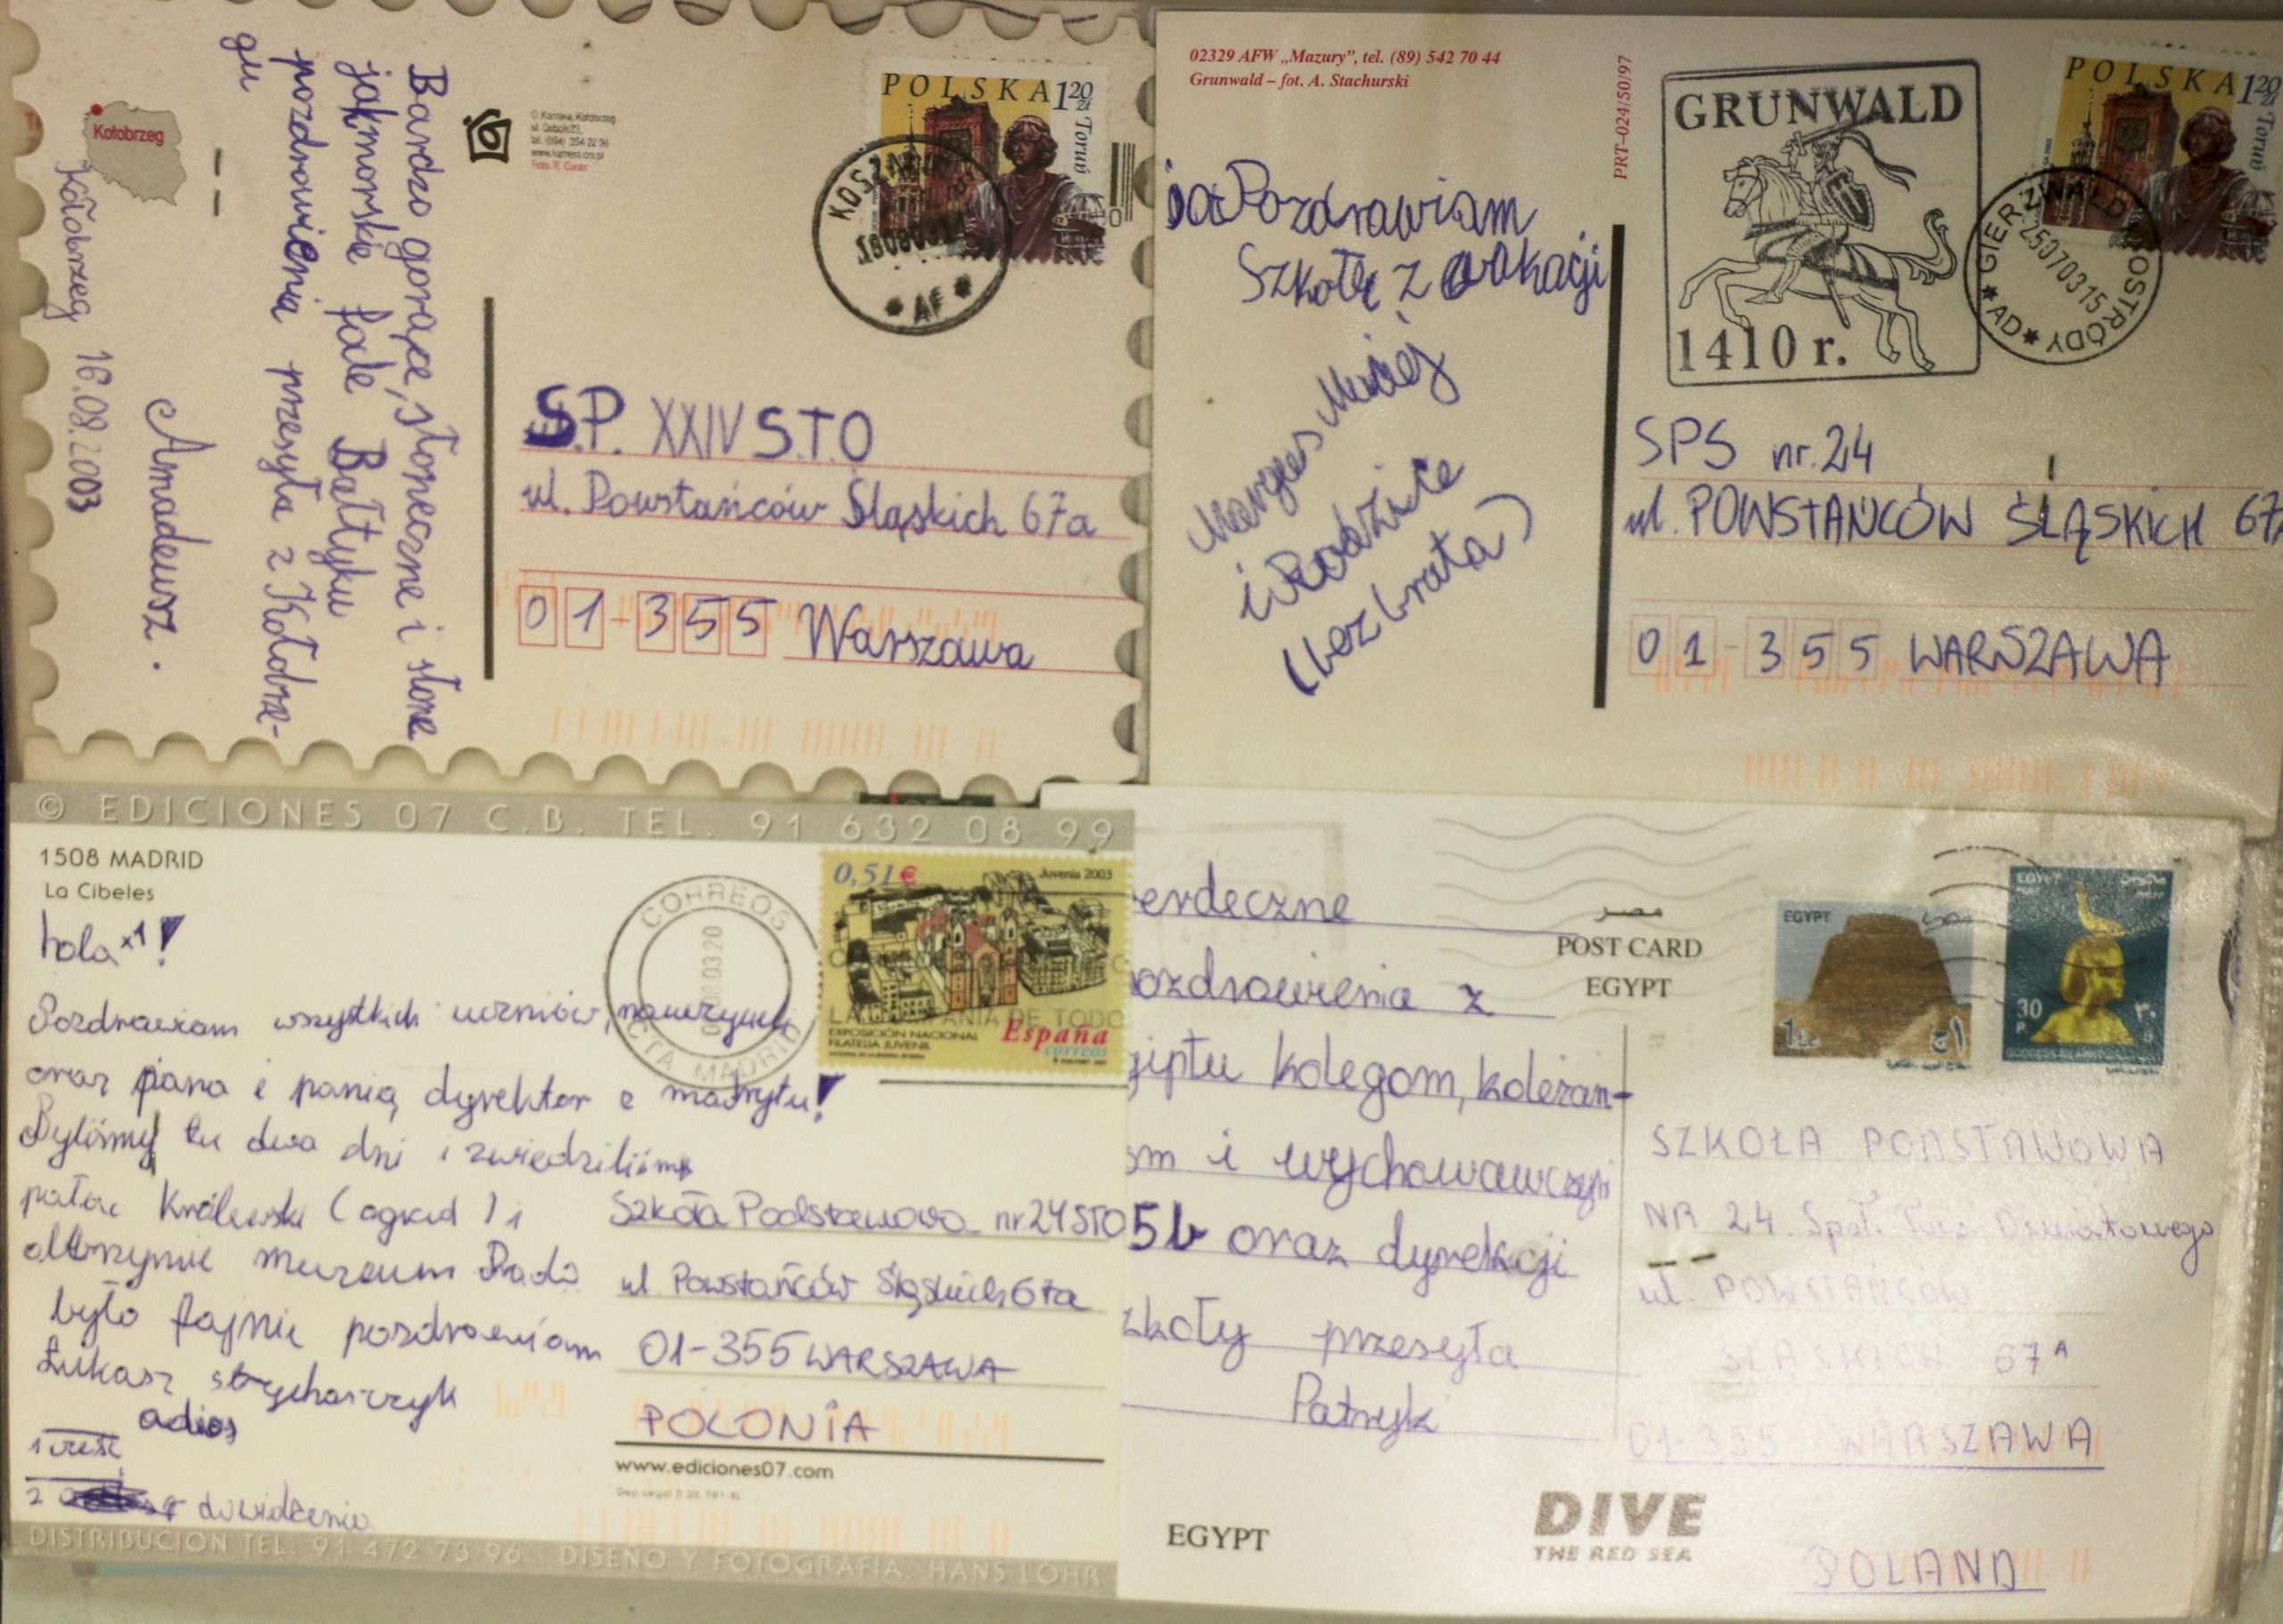 Kołobrzeg
Kołobrzeg 16.08.2003
Bardzo gorące, słoneczne i słone
jak morskie fale Bałtyku
pozdrowienia przesyła z Kołobrze-
gu
Amadeusz.
© Kamera, Kołobrzeg
www.kamera.cns.pl
POLSKA 1 20 zł
Toruń
* AF *
S.P. XXIV S.T.O
ul. Powstańców Śląskich 67a
01-355 Warszawa
02329 AFW „Mazury”, tel. (89) 542 70 44
Grunwald – fot. A. Stachurski
PRT–024/50/97
GRUNWALD
1410 r.
POLSKA 1 20 zł
Toruń
GIERZWAŁD K OSTRÓDY
25070315
* AD *
Pozdrawiam
Szkołę z wakacji
i Rodzice
(bez brata)
SPS nr. 24
ul. POWSTAŃCÓW ŚLĄSKICH 67A
01-355 WARSZAWA
© EDICIONES 07 C.B. TEL. 91 632 08 99
1508 MADRID
La Cibeles
CORREOS
CTA MADRID
0,51€
Juvenia 2003
España
correos
EXPOSICIÓN NACIONAL
FILATELIA JUVENIL
hola x1!
Pozdrawiam wszystkich uczniów,
oraz pana i panią dyrektor z madrytu!
Byliśmy tu dwa dni i zwiedziliśmy
pałac Królewski (ogród) i
olbrzymie muzeum Prado
było fajnie pozdrawiam
Łukasz strycharczyk
adios
1 cześć
2 dowidzenia
Szkoła Podstawowa nr 24 STO
ul Powstańców Śląskich 67a
01-355 WARSZAWA
POLONIA
www.ediciones07.com
DISTRIBUCION TEL. 91 472 73 96 DISEÑO Y FOTOGRAFIA: HANS LOHR
erdeczne
ozdrowienia z
giptu kolegom, koleżan-
om i wychowawczyni
5b oraz dyrekcji
zkoły przesyła
Patryk
مصر
POST CARD
EGYPT
EGYPT
مصر
1 L.E
EGYPT
30 P.
٣٠
SZKOŁA PODSTAWOWA
NR 24 Społ. Tow. Oświatowego
ul. POWSTAŃCÓW
ŚLĄSKICH 67A
01-355 WARSZAWA
POLAND
EGYPT
DIVE
THE RED SEA